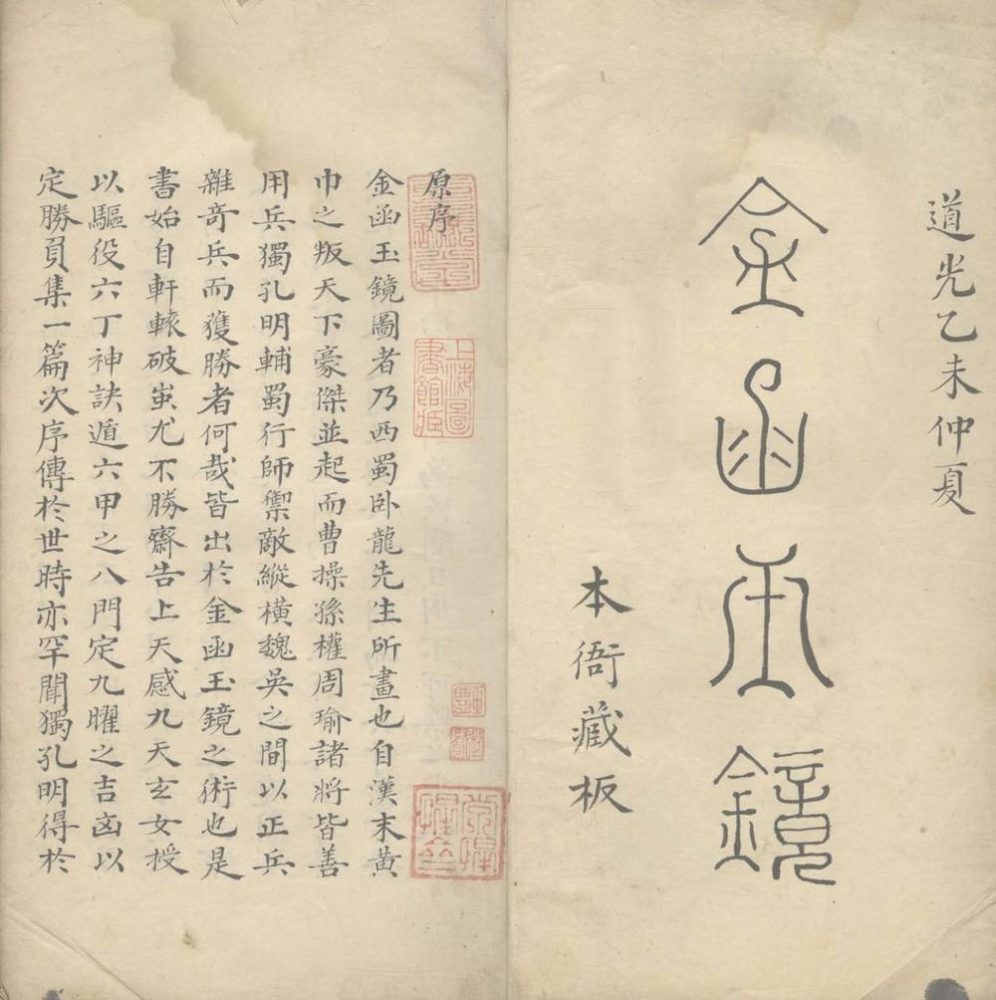 道光乙未仲夏
金函玉鏡
本衙藏板
原序
金函玉鏡圖者乃西蜀卧龍先生所畫也自漢末黃
巾之叛天下豪傑並起而曹操孫權周瑜諸將皆善
用兵獨孔明輔蜀行師禦敵縱橫魏吳之間以正兵
雜竒兵而獲勝者何哉皆出於金函玉鏡之術也是
書始自軒轅破蚩尤不勝齋告上天感九天玄女授
以驅役六丁神訣遁六甲之八門定九曜之吉凶以
定勝負集一篇次序傳於世時亦罕聞獨孔明得於
上海圖書館藏